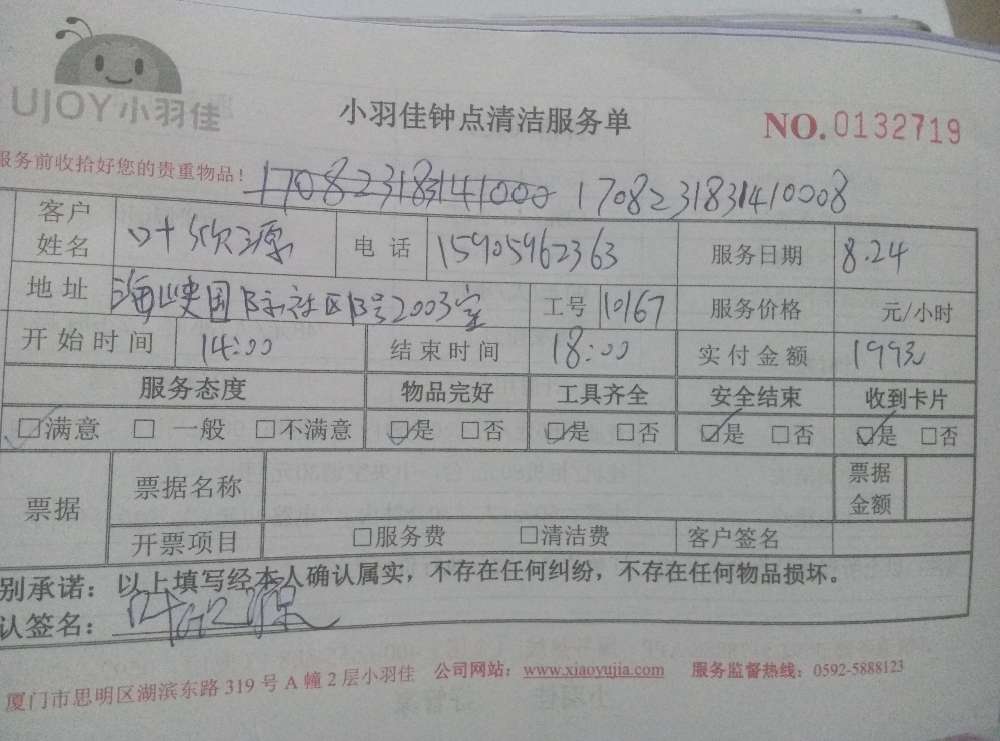 UJOY小羽佳
小羽佳钟点清洁服务单
NO.0132719
服务前收拾好您的贵重物品！ 1708231831410008
客户姓名 叶欣源 电话 15905962363 服务日期 8.24
地址 海峡国际社区B号2003室 工号 10167 服务价格 元/小时
开始时间 14:00 结束时间 18:00 实付金额 199元
服务态度 物品完好 工具齐全 安全结束 收到卡片
☑满意 □ 一般 □不满意 ☑是 □否 ☑是 □否 ☑是 □否 ☑是 □否
票据 票据名称 票据金额
开票项目 □服务费 □清洁费 客户签名
别承诺：以上填写经本人确认属实，不存在任何纠纷，不存在任何物品损坏。
认签名：
厦门市思明区湖滨东路 319 号 A 幢 2 层小羽佳 公司网站：www.xiaoyujia.com 服务监督热线：0592-5888123